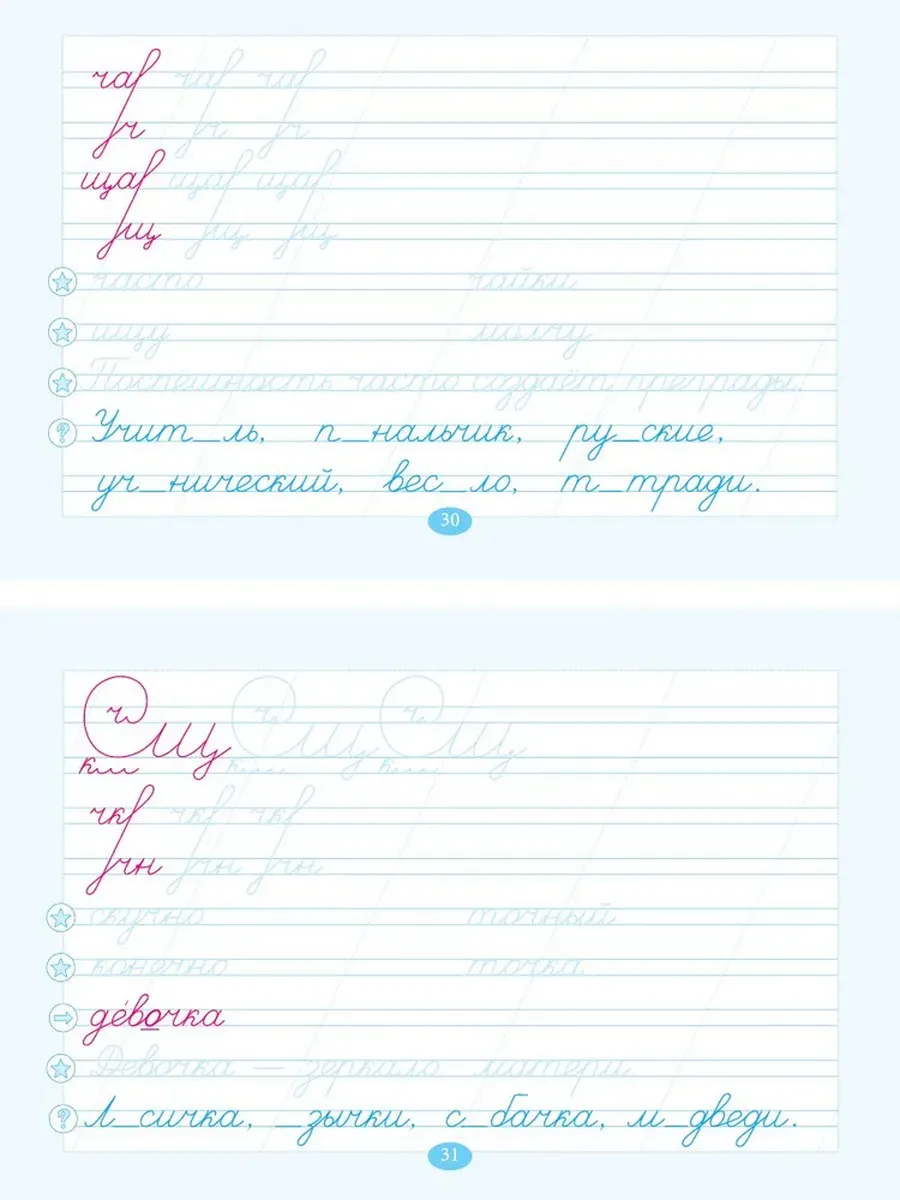 чав чав чав
уч уч уч
щав щав щав
ущ ущ ущ
часто чайки
ищу молчу
Поспешность часто создаёт преграды.
Учит_ль, п_нальчик, ру_ские,
уч_нический, вес_ло, т_тради.
30
ч
щу
к
чкв чкв чкв
учн учн учн
скучно точный
конечно точка
де́вочка
Девочка — зеркало матери
Л_сичка, _зычки, с_бачка, м_дведи.
31